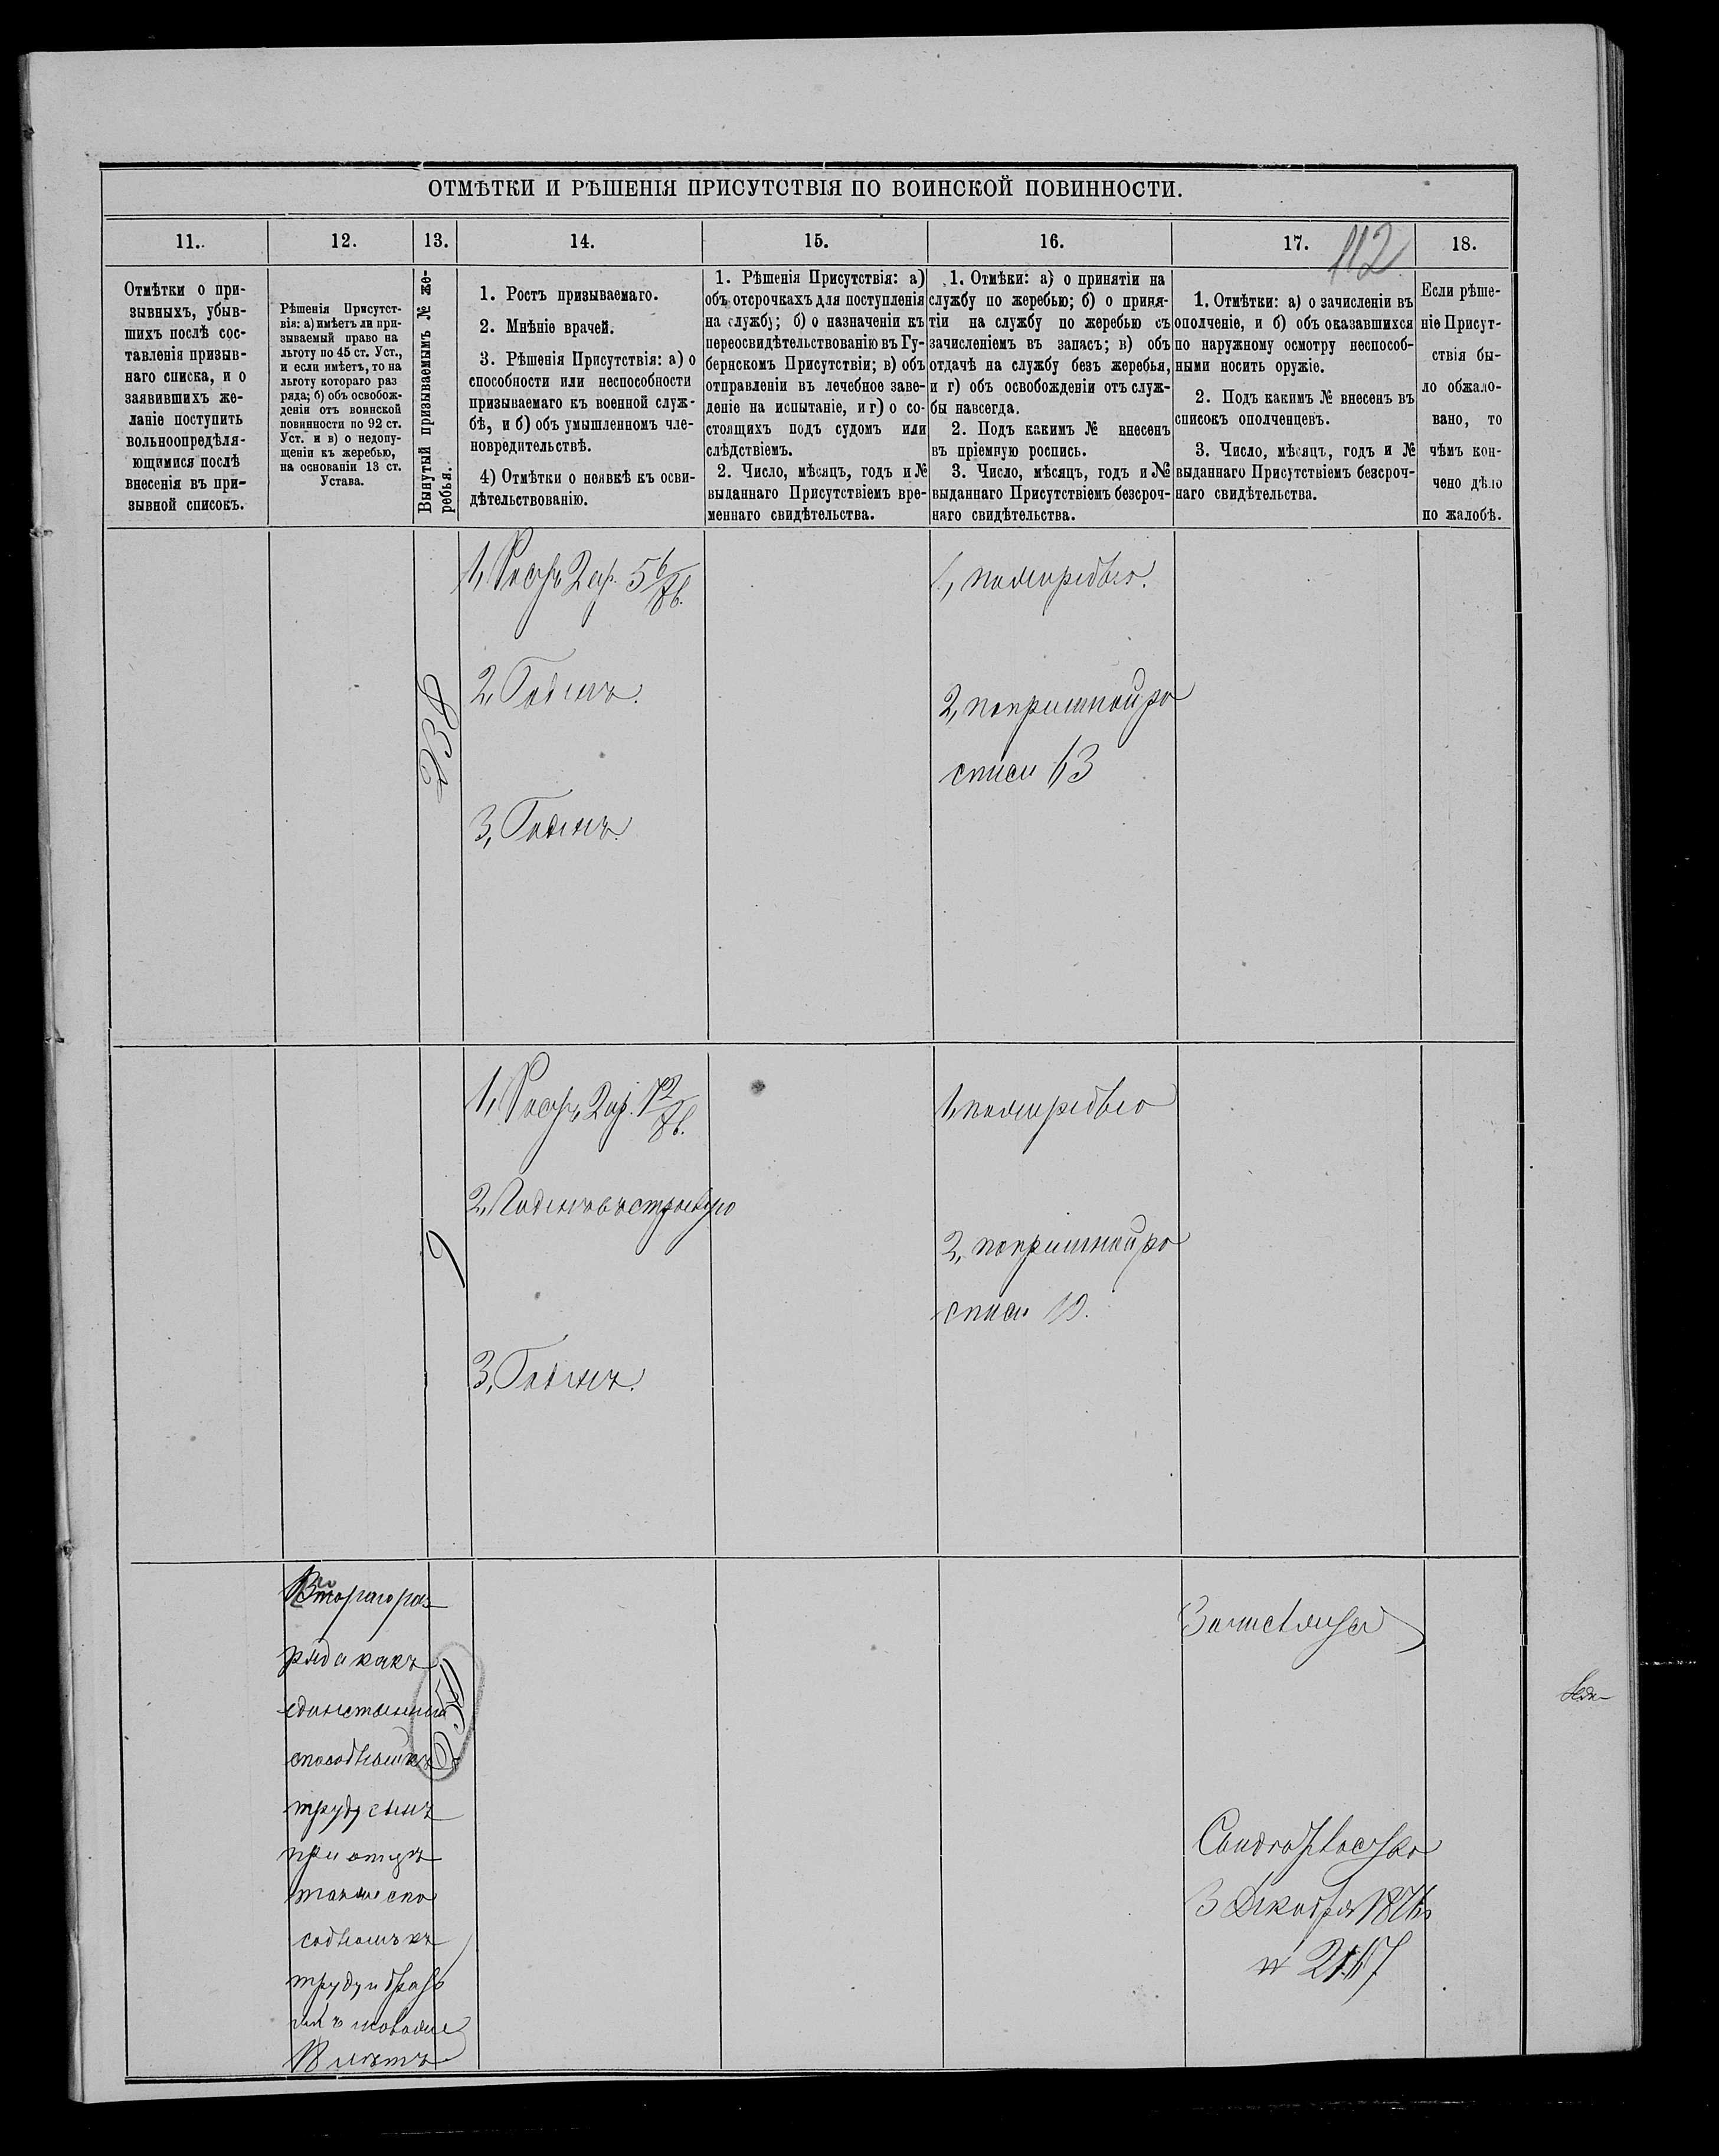 ОТМѢТКИ И РѢШЕНІЯ ПРИСУТСТВІЯ ПО ВОИНСКОЙ ПОВИННОСТИ.
112
11.
12.
13.
14.
15.
16.
17.
18.
Отмѣтки о при-
зывныхъ, убыв-
шихъ послѣ сос-
тавленія призыв-
наго списка, и о
заявившихъ же-
ланіе поступить
вольноопредѣля-
ющимися послѣ
внесенія въ при-
зывной списокъ.
Рѣшенія Присутст-
вія: а) имѣетъ ли при-
зываемый право на
льготу по 45 ст. Уст.,
и если имѣетъ, то на
льготу котораго раз
ряда; б) объ освобож-
деніи отъ воинской
повинности по 92 ст.
Уст. и в) о недопу-
щеніи къ жеребью,
на основаніи 13 ст.
Устава.
Вынутый призываемымъ № же-
ребья.
1. Ростъ призываемаго.
2. Мнѣніе врачей.
3. Рѣшенія Присутствія: а) о
способности или неспособности
призываемаго къ военной служ-
бѣ, и б) объ умышленномъ чле-
новредительствѣ.
4) Отмѣтки о неявкѣ къ осви-
дѣтельствованію.
1. Рѣшенія Присутствія: а)
объ отсрочкахъ для поступленія
на службу; б) о назначеніи къ
переосвидѣтельствованію въ Гу-
бернскомъ Присутствіи; в) объ
отправленіи въ лечебное заве-
деніе на испытаніе, и г) о со-
стоящихъ подъ судомъ или
слѣдствіемъ.
2. Число, мѣсяцъ, годъ и №
выданнаго Присутствіемъ вре-
меннаго свидѣтельства.
1. Отмѣки: а) о принятіи на
службу по жеребью; б) о приня-
тіи на службу по жеребью съ
зачисленіемъ въ запасъ; в) объ
отдачѣ на службу безъ жеребья,
и г) объ освобожденіи отъ служ-
бы навсегда.
2. Подъ какимъ № внесенъ
въ пріемную роспись.
3. Число, мѣсяцъ, годъ и №
выданнаго Присутствіемъ безсроч-
наго свидѣтельства.
1. Отмѣтки: а) о зачисленіи въ
ополченіе, и б) объ оказавшихся
по наружному осмотру неспособ-
ными носить оружіе.
2. Подъ какимъ № внесенъ въ
списокъ ополченцевъ.
3. Число, мѣсяцъ, годъ и №
выданнаго Присутствіемъ безсроч-
наго свидѣтельства.
Если рѣше-
ніе Присут-
ствія бы-
ло обжало-
вано, то
чѣмъ кон-
чено дѣло
по жалобѣ.
238
1, Ростъ 2 ар. 5 6/8 в.
2, Годенъ.
3, Годенъ.
1, по жеребью.
2, по пріемной ро
списи 63
9
1, Ростъ 2 ар.
2, Годенъ въ строевую
3, Годенъ.
1, по жеребью
2, по пріемной ро
списи
Втораго раз
ряда какъ
единственный
способный къ
труду сынъ
при отцѣ
также спо
собномъ къ
труду и братѣ
не моложе
18 лѣтъ
Зачисляется
Свидѣтельство
3 Декабря 1876
№